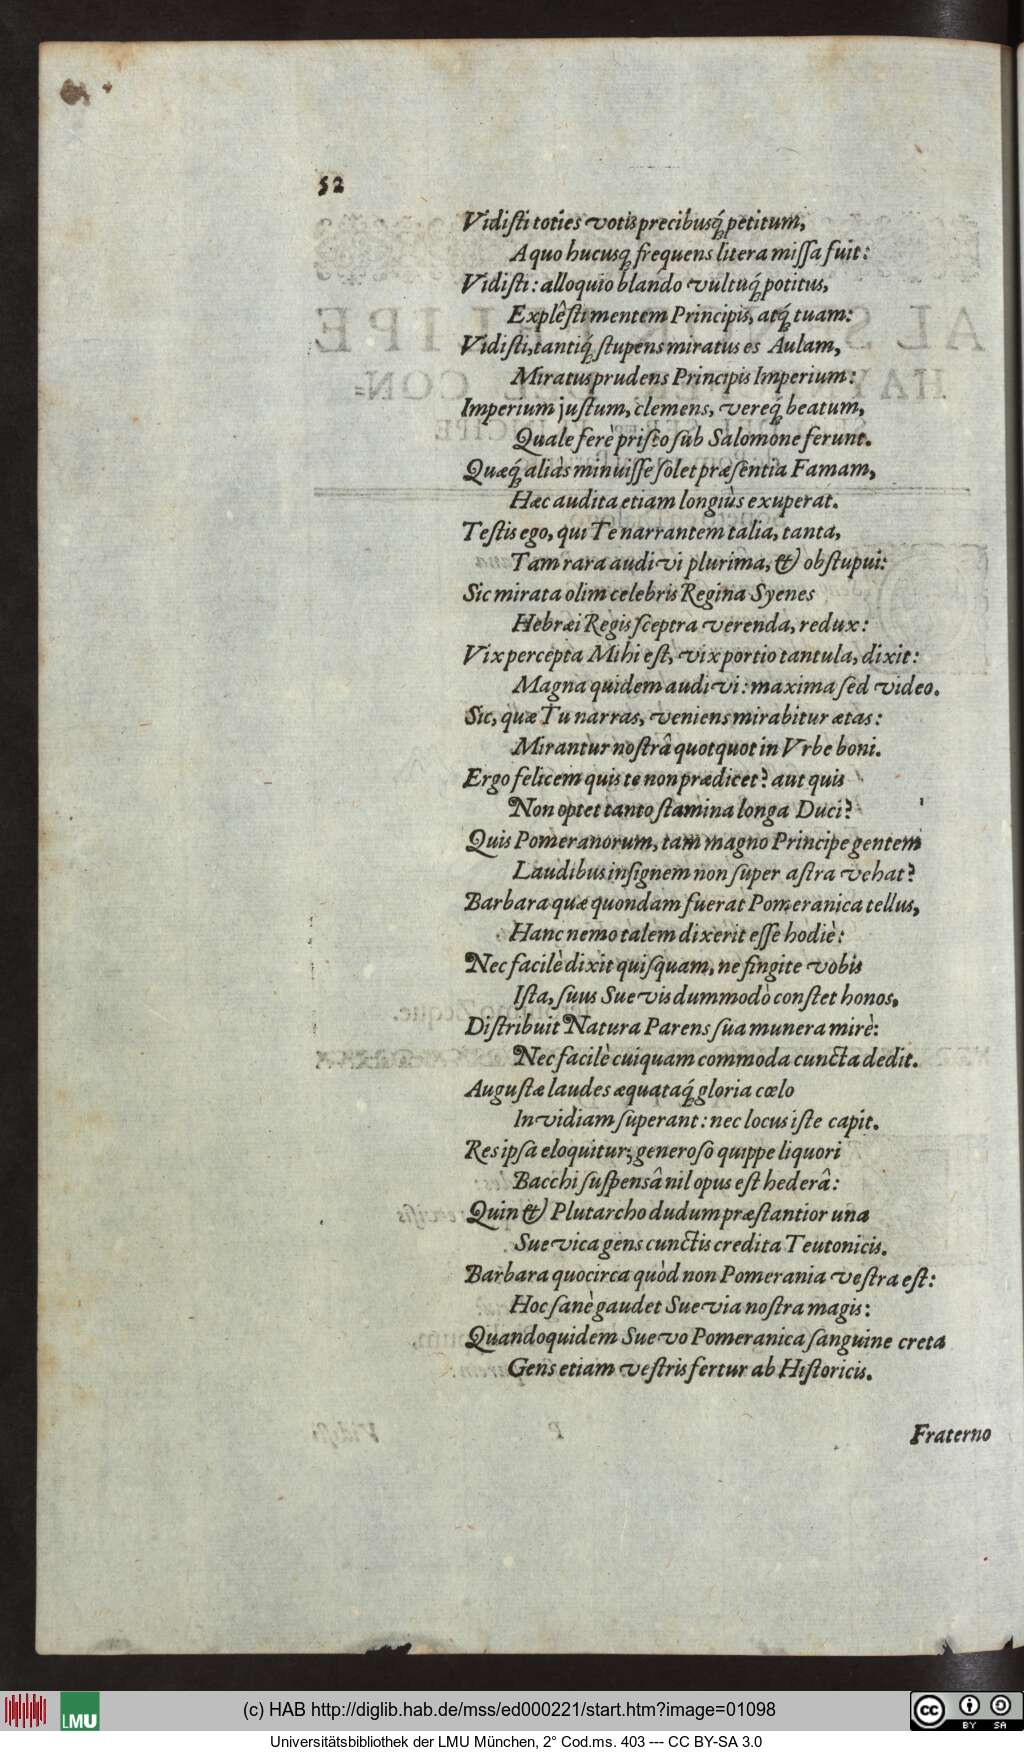 52
Vidiſti toties votis precibusq́ petitum,
A quo hucusq frequens litera miſſa fuit:
Vidiſti: alloquio blando vultuq́ potitus,
Explêſti mentem Principis, atq́ tuam:
Vidiſti, tantiq́ ſtupens miratus es Aulam,
Miratus prudens Principis Imperium:
Imperium juſtum, clemens, vereq́ beatum,
Quale ferè priſco ſub Salomone ferunt.
Quæq́ aliàs minuiſſe ſolet præſentia Famam,
Hæc audita etiam longiùs exuperat.
Teſtis ego, qui Te narrantem talia, tanta,
Tam rara audivi plurima, & obſtupui:
Sic mirata olim celebris Regina Syenes
Hebræi Regis ſceptra verenda, redux:
Vix percepta Mihi eſt, vix portio tantula, dixit:
Magna quidem audivi: maxima ſed video.
Sic, quæ Tu narras, veniens mirabitur ætas:
Mirantur noſtrâ quotquot in Vrbe boni.
Ergo felicem quis te non prædicet? aut quis
Non optet tanto ſtamina longa Duci?
Quis Pomeranorum, tam magno Principe gentem
Laudibus inſignem non ſuper aſtra vehat?
Barbara quæ quondam fuerat Pomeranica tellus,
Hanc nemo talem dixerit eſſe hodiè:
Nec facilè dixit quiſquam, ne fingite vobis
Iſta, ſuus Suevis dummodò conſtet honos,
Diſtribuit Natura Parens ſua munera mirè:
Nec facilè cuiquam commoda cuncta dedit.
Auguſtæ laudes æquataq́ gloria cœlo
Invidiam ſuperant: nec locus iſte capit.
Res ipſa eloquitur; generoſo quippe liquori
Bacchi ſuſpensâ nil opus eſt hederâ:
Quin & Plutarcho dudum præſtantior una
Suevica gens cunctis credita Teutonicis.
Barbara quocirca quòd non Pomerania veſtra eſt:
Hoc ſanè gaudet Suevia noſtra magis:
Quandoquidem Suevo Pomeranica ſanguine creta
Gens etiam veſtris fertur ab Hiſtoricis.
Fraterno
LMU
(c) HAB http://diglib.hab.de/mss/ed000221/start.htm?image=01098
cc BY SA
Universitätsbibliothek der LMU München, 2° Cod.ms. 403 --- CC BY-SA 3.0